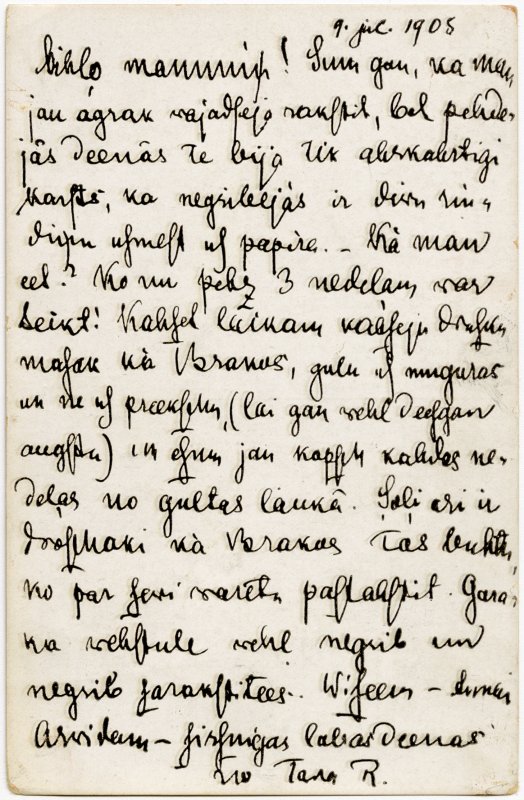 9. jul. 1905
Mihļo mammiņ! Sinu gan, ka man
jau agrak wajadseja rakstit, bet pehde-
jās deenās te bija tik ahrkahrtigi
karsts, ka negribejās ir diwu rin-
diņu usmest us papira. - Kā man
eet? Ko nu pehz 3 nedelam war
teikt! Kahset laikam kahseju drusku
masak kā Brakos, gulu us muguras
un ne us preekschu, (lai gan wehl deesgan
augstu) un esmu jau kopsch kahdas ne-
delas no gultas laukā. Soli ari ir
droschaki kā Brakos. Tas buhtu,
ko par sewi waretu pastahstit. Gara-
ka wehstule wehl negrib un
negrib sarakstitees. Wiseem -
Arwidam - sirsnigas labasdeenas
no Tawa R.